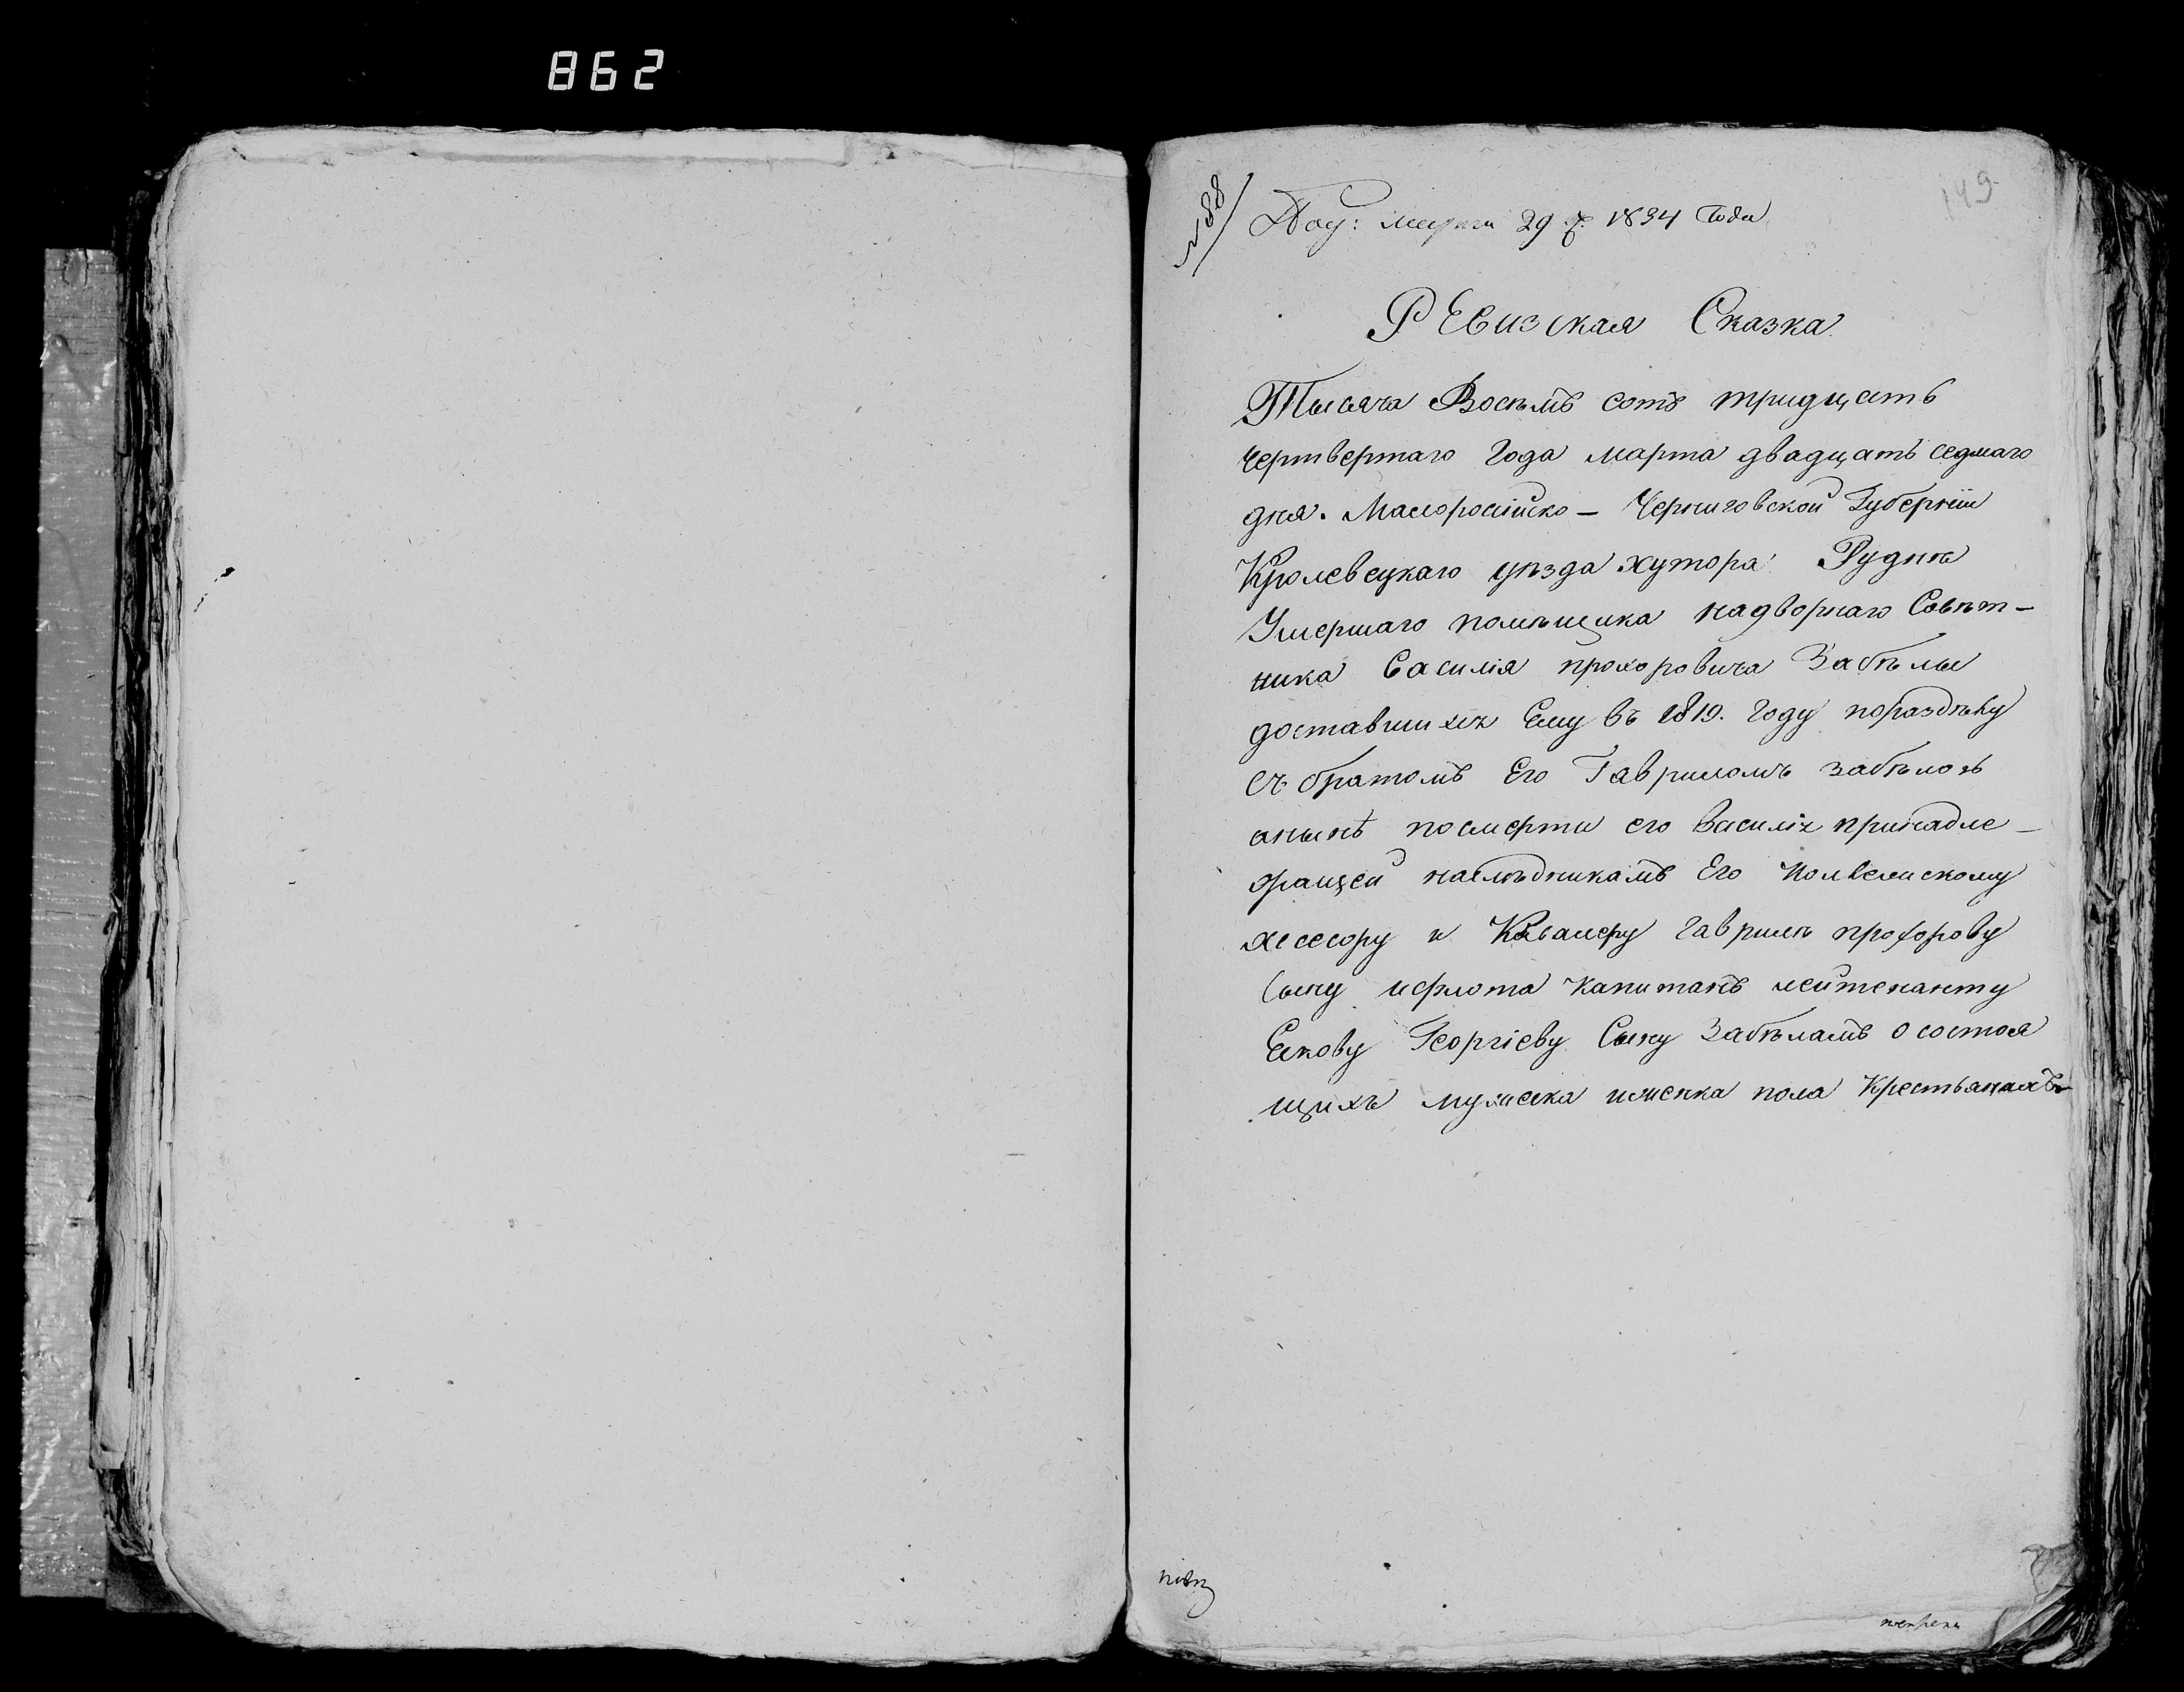 862
149
№ 88
Пол: марта 29 д. 1834 Года
РЕвизская Сказка
Тысяча Восемъ сотъ тридцать
Чертвертаго года марта двадцатъ седмаго
дня. Малоросійско – Черниговской Губерніи
Кролевецкаго уѣзда хутора Руднѣ
Умершаго помѣщика надворнаго Совѣт –
ника Василія прохоровича Забѣлы
доставшихся Ему въ 1819. году поразделу
съ братомъ Его Гавриломъ забѣлоъ
анынѣ посмерти его василія принадле –
жащей наслѣдникамъ Его Колѣжскому
асесору и Кавалеру гаврилѣ прохорову
Сыну ифлота капитанъ лейтенанту
Георгіеву Сыну Забѣламъ О состоя
щихъ мужеска иженска пола Крестьянахъ